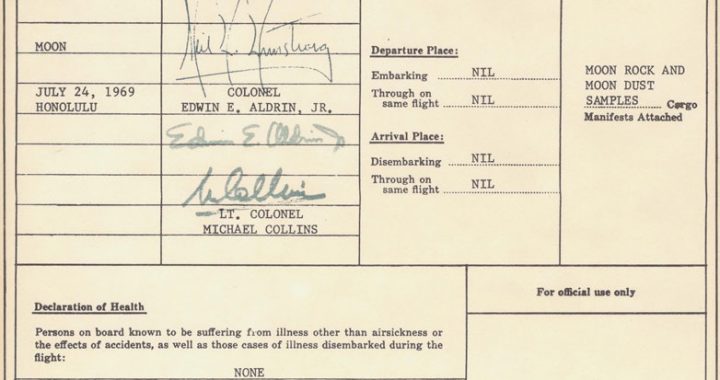 Neil A. Armstrong
MOON
JULY 24, 1969
HONOLULU
COLONEL
EDWIN E. ALDRIN, JR.
Edwin E Aldrin Jr
M Collins
LT. COLONEL
MICHAEL COLLINS
Departure Place:
Embarking NIL
Through on
same flight NIL
Arrival Place:
Disembarking NIL
Through on
same flight NIL
MOON ROCK AND
MOON DUST
SAMPLES Cargo
Manifests Attached
Declaration of Health
For official use only
Persons on board known to be suffering from illness other than airsickness or
the effects of accidents, as well as those cases of illness disembarked during the
flight:
NONE